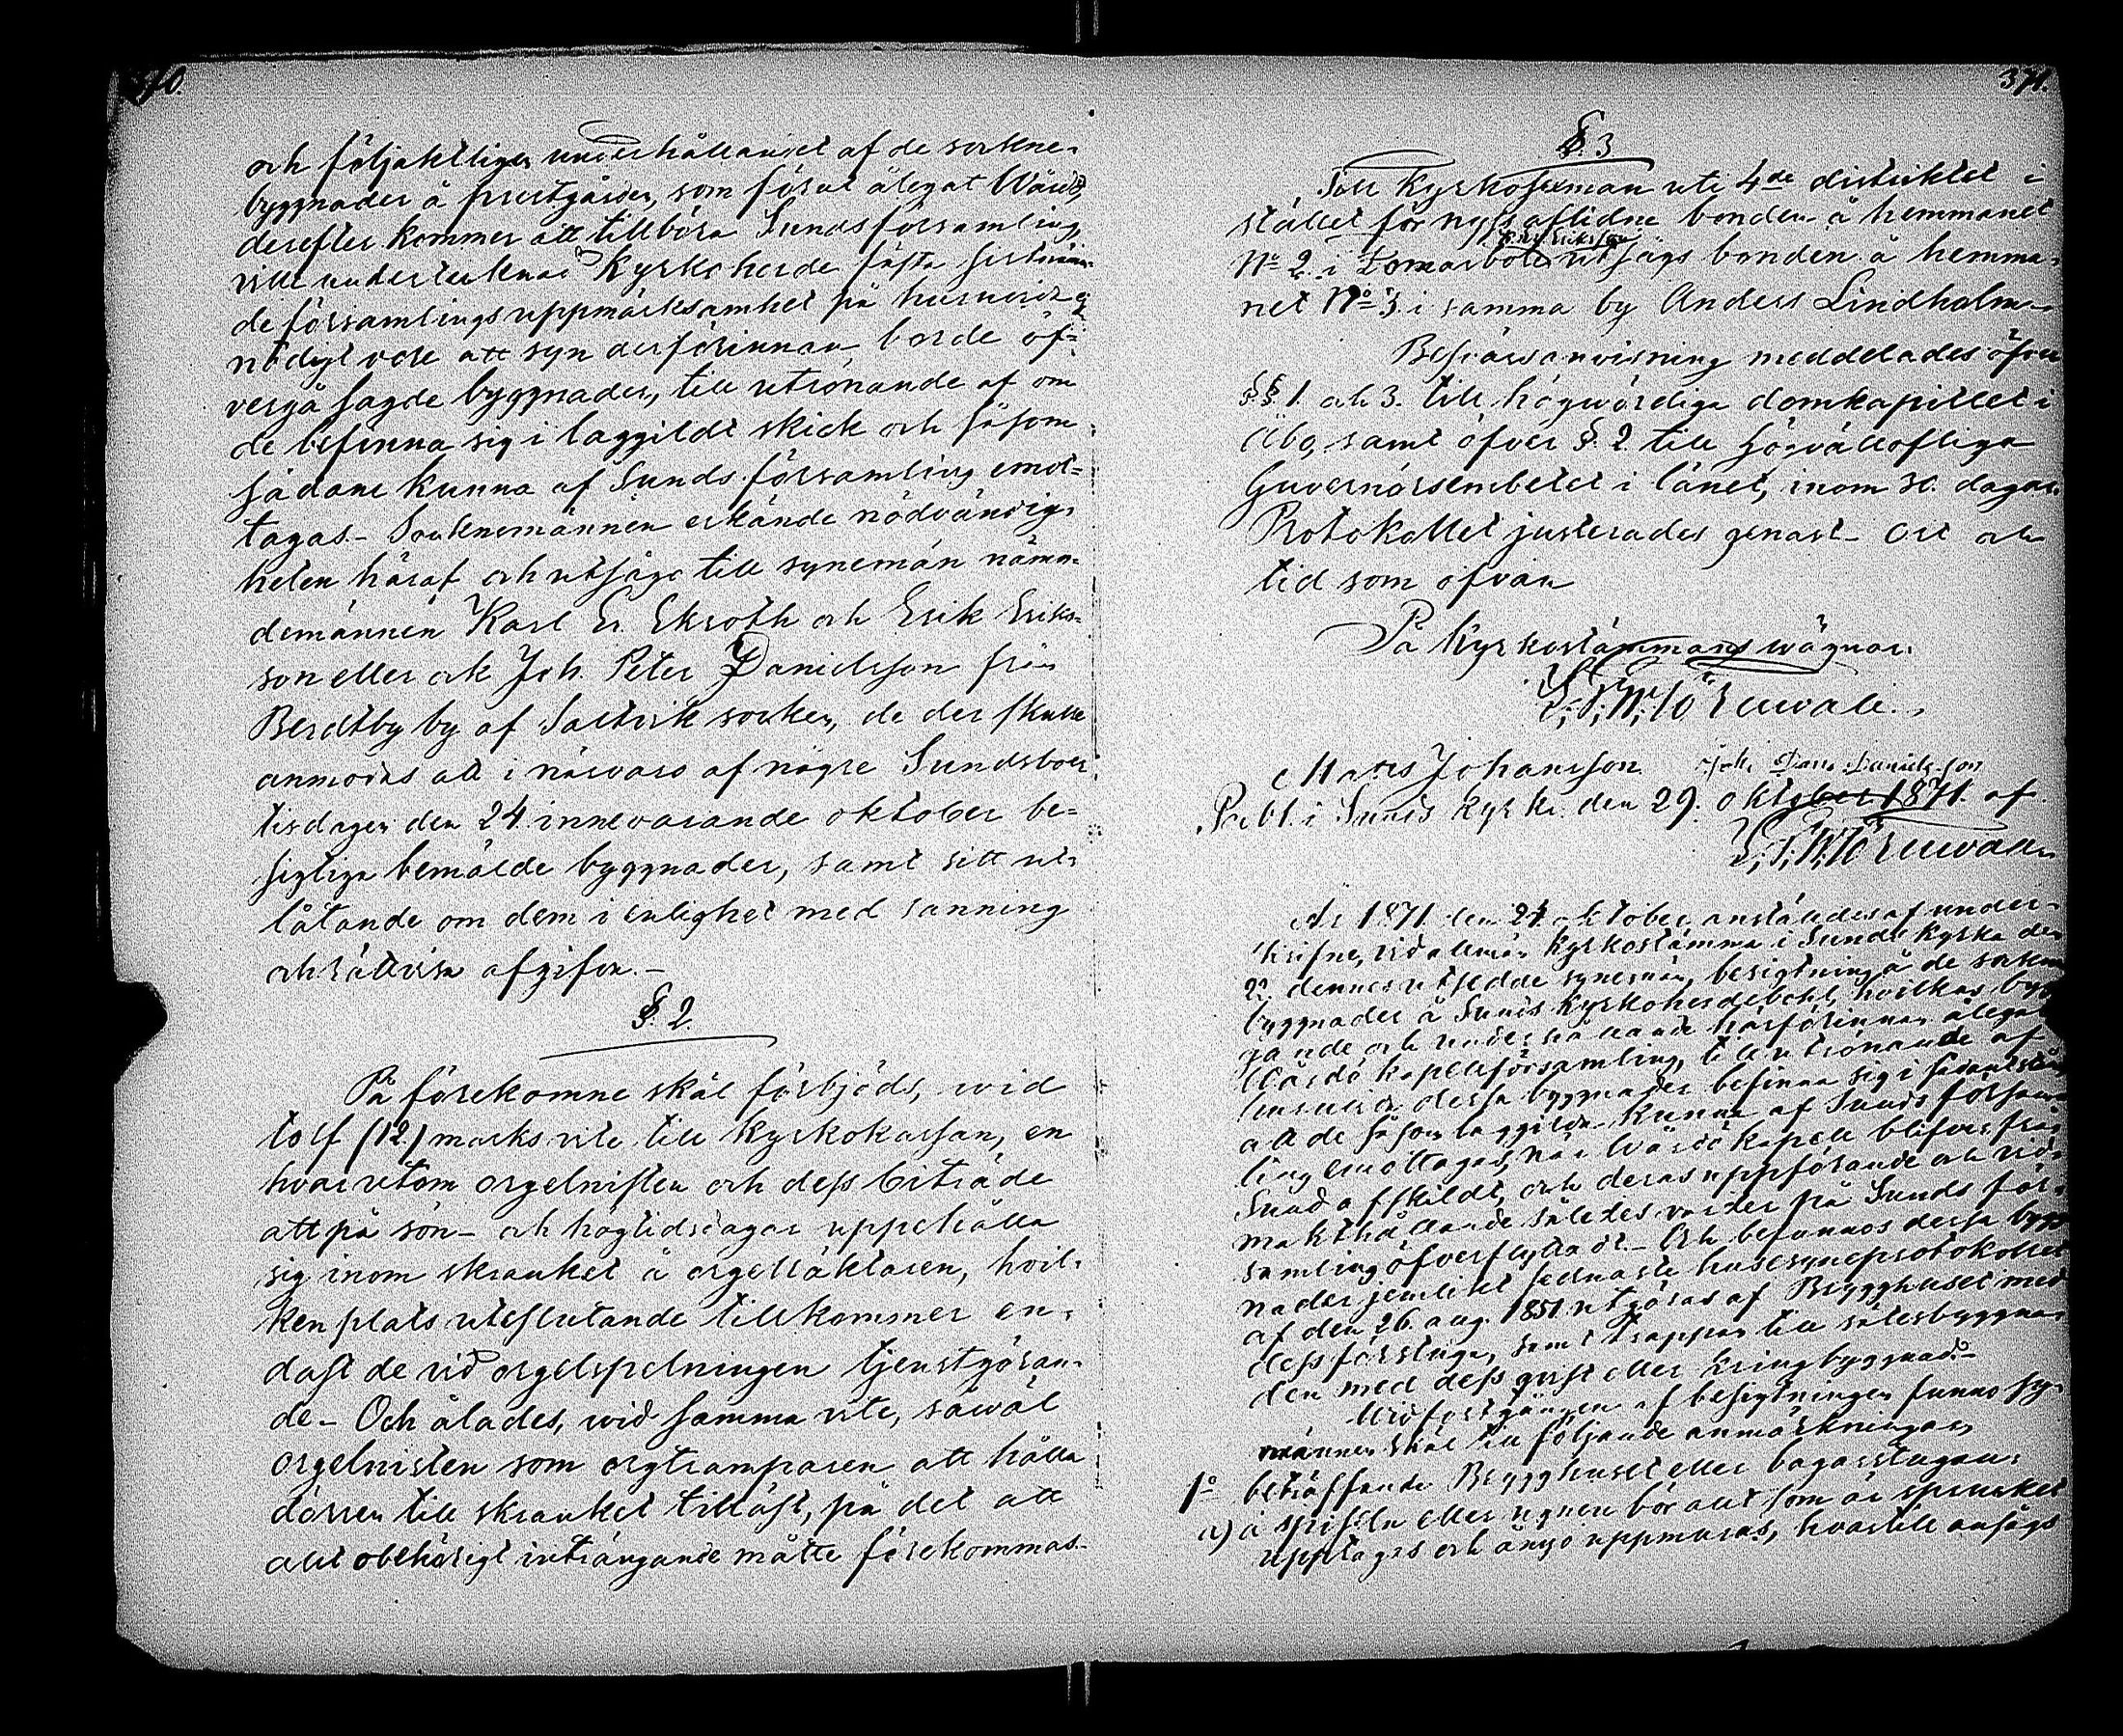 370.
och följaktligen underhållandet af de sockne-
byggnader å prestgården, som förut ålegat Wårdö,
derefter kommer att tillhöra Sunds församling,
ville undertecknad Kyrkoherde fästa
de församlings uppmärksamhet på huruvida ej
nödigt vore att syn derförinnan, borde öf-
vergå sagde byggnader, till utrönande af om
de befinna sig i laggildt skick och såsom
sådane kunna af Sunds församling emot-
tagas. Socknemännen erkände nödvändig-
heten häraf och utsågo till synemän nämn-
demännen Karl Er. Ekroth och Erik Eriks-
son eller ock Joh. Peter Danielsson från
Berdtby by af Saltvik socken, de der skulle
anmodas att i närvaro af några Sundsboer
tisdagen den 24 innevarande oktober be-
sigtiga bemälde byggnader, samt sitt ut-
låtande om dem i enlighet med sanning
och rättvisa afgifva.-
§. 2.
På förekomne skäl förbjöds, wid
tolf (12) marks vite till Kyrkokassan, en
hvar utom orgelnisten och dess biträde
att på sön- och högtidsdagar uppehålla
sig inom skranket å orgelläktaren, hvil-
ken plats uteslutande tillkommer en-
dast de vid orgelspelningen tjenstgöran-
de.- Och ålades, wid samma vite, såwäl
orgelnisten som orgtramparen att hålla
dörren till skranket tillåst, på det att
allt obehörigt inträngande måtte förekommas.-
371.
§. 3
Till Kyrkosexman uti 4de distriktet i
stället för nyss aflidne bonden å hemmanet
No 2 i utsågs bonden å hemma-
net No 3. i samma by Anders Lindholm.
Besvärsanvisning meddelades öfver
§.§ 1. och 3. till högwördiga domkapitlet i
Åbo, samt öfver §. 2 till högvällofliga
Guvernörsembetet i länet, inom 30. dagar.
Protokollet justerades genast. Ort och
tid som ofvan
På Kyrkostämmans wägnar:
Mats Johansson Joh: Danielsson
Publ. i Sunds Kyrka den 29. oktober 1871. af
År 1871 den 24 oktober anställdes af under-
skrifne, vid allmän Kyrkostämma i Sunds Kyrka den
22 dennes utsedde synemän, besigtning å de sockne
byggnader å Sunds Kyrkoherdebohl, hvilkas bygg-
gande och underhållande härförinnan ålegat
Wårdö kapellförsamling, till utrönande af
huruvida dessa byggnader befinna sig i sådant stånd
att de såsom laggilda kunna af Sunds försam-
ling emottagas, när Wårdö kapell blifver från
Sund afskildt, och deras uppförande och vid-
makthållande således varder på Sunds för-
samling öfverflyttadt.- Och befunnos dessa bygg-
nader jemlikt sednaste husesyneprotokollet
af den 26. aug. 1851 utgöras af Brygghuset med
dess förstuga, samt trappan till sätesbyggna-
den med dess qvist eller kringbyggnad.-
Wid fortgången af besigtningen funno sy-
männen skäl till följande anmärkningar,
1o beträffande Brygghuset eller bagarstugan:
a) å spiseln eller ugnen bör allt som är sprucket
upptagas och ånyo uppmuras, hvartill ansågs